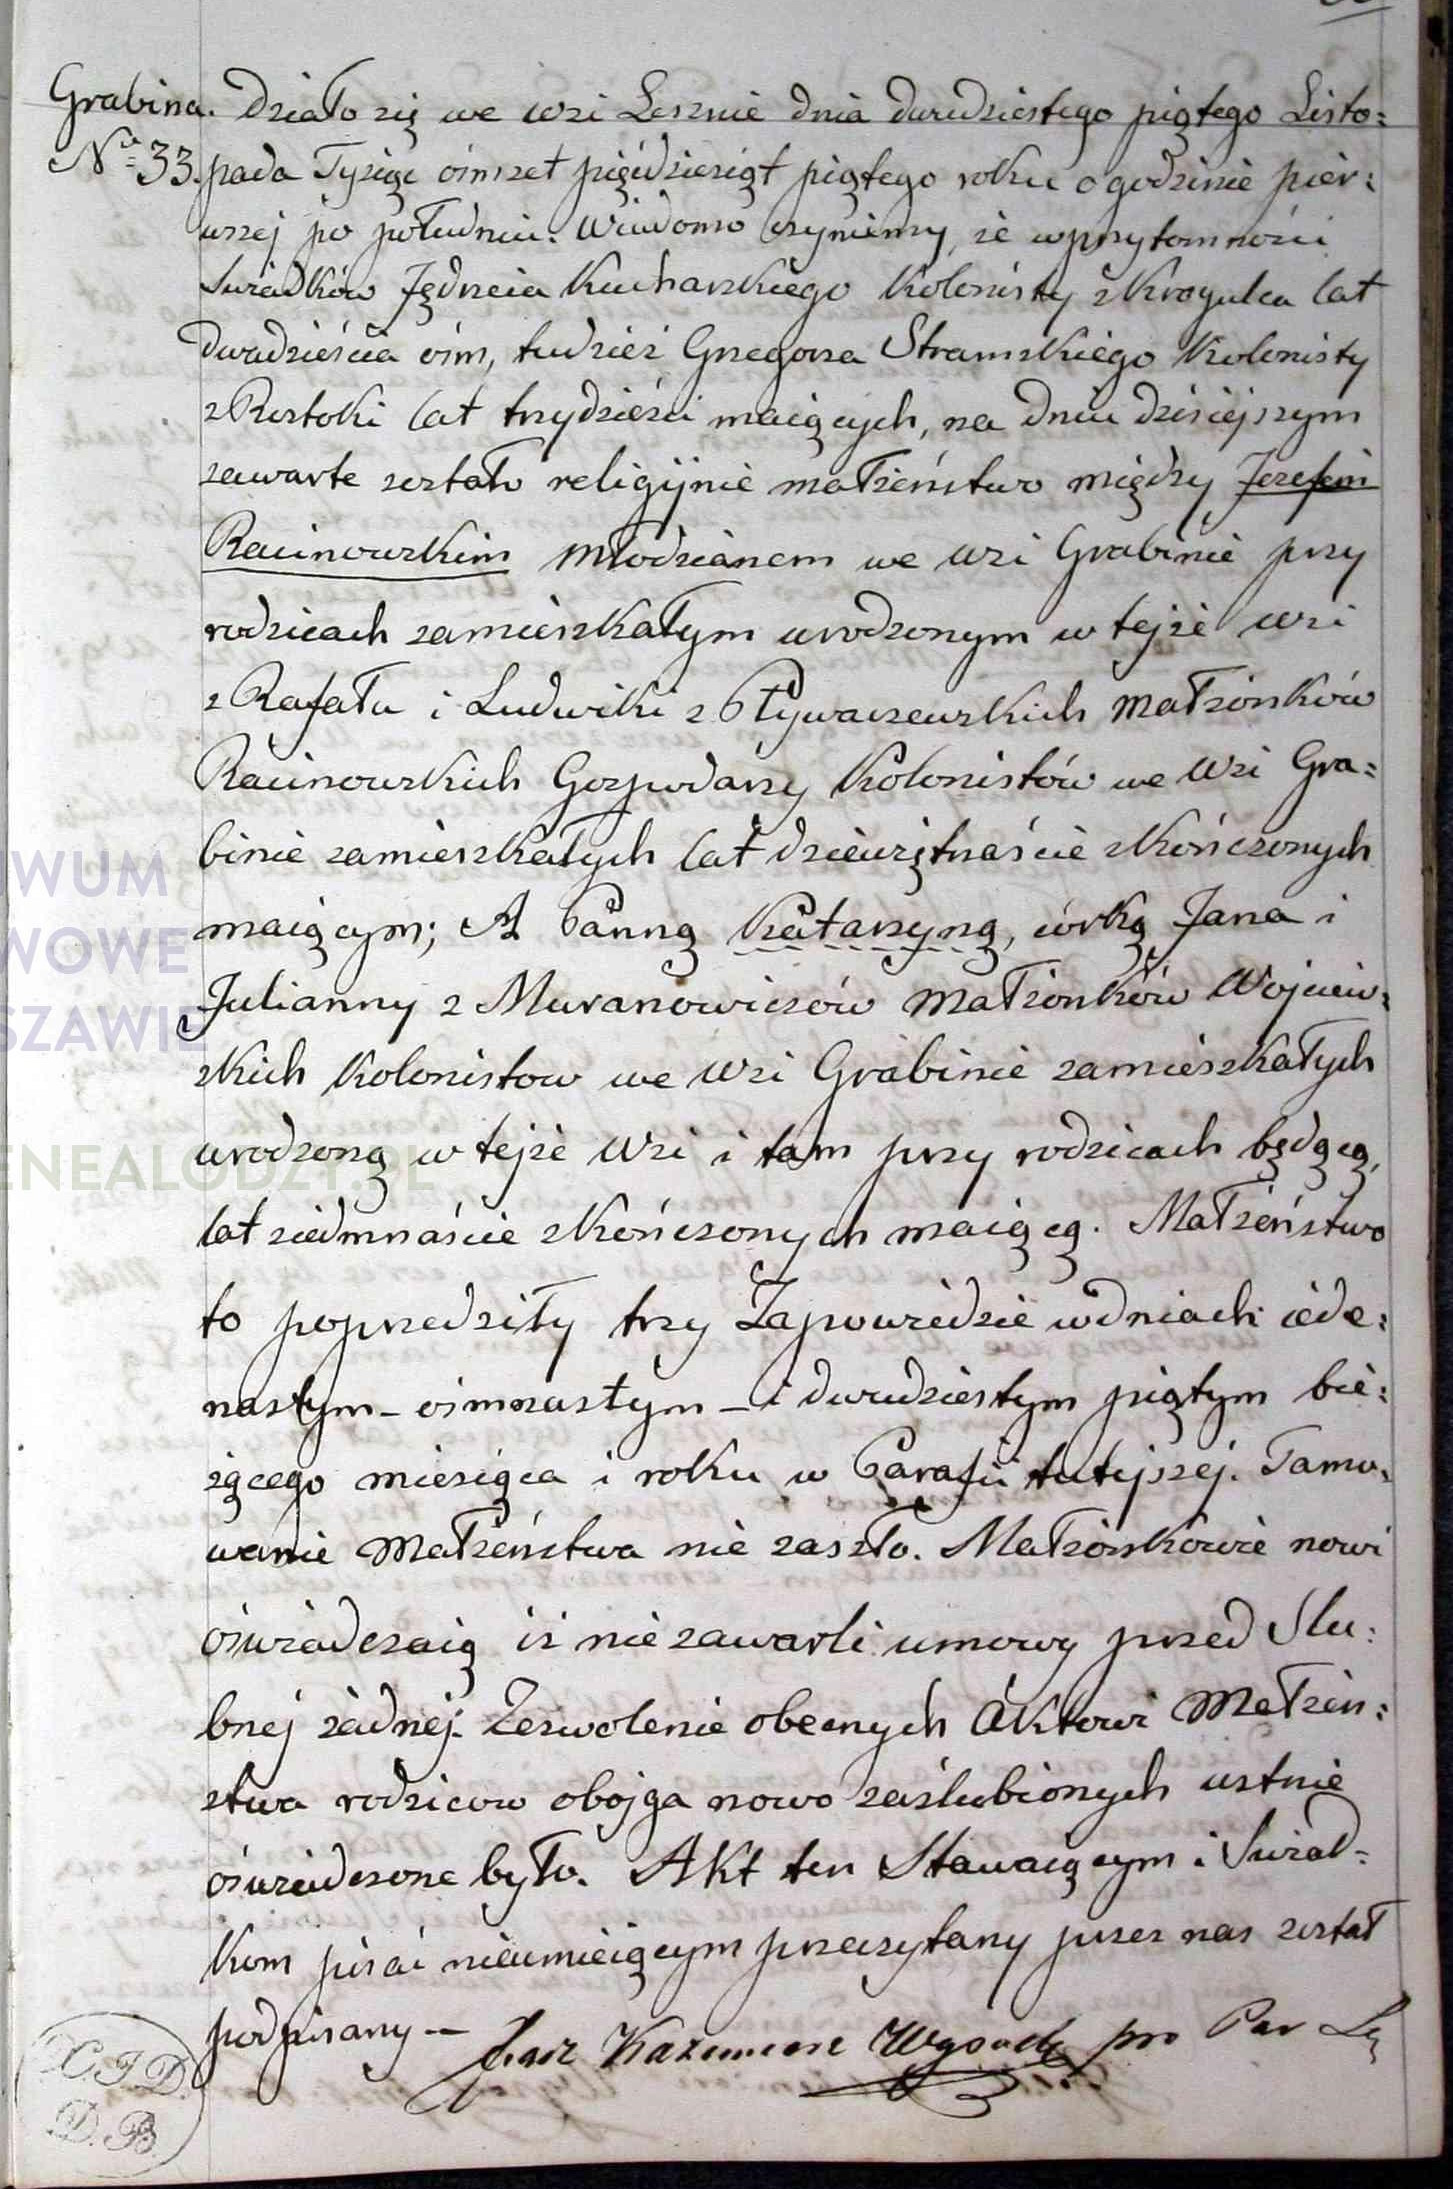 Grabina. Działo się we wsi Lesznie dnia dwudziestego piątego Listo=
No 33. pada Tysiąc ośmset pięćdziesiąt piątego roku o godzinie pier=
wszej po południu. Wiadomo czyniemy, że w przytomności
Swiadków Jędrzeia Kucharskiego Kolonisty z Krogulca lat
dwadzieścia ośm, tudzież Grzegorza Stramskiego Kolonisty
z Roztoki lat trzydzieści maiących, na dniu dzisiejszym
zawarte zostało religijnie małżeństwo między Jozefem
Racinowskim Młodzianem we wsi Grabinie przy
rodzicach zamieszkałym urodzonym w tejże wsi
z Rafała i Ludwiki z Pływaczewskich Małżonków
Racinowskich Gospodarzy Kolonistów we Wsi Gra=
binie zamieszkałych lat dziewiętnaście skończonych
maiącym; A Panną Katarzyną, córką Jana i
Julianny z Muranowiczów Małżonków Wojciew=
skich Kolonistow we Wsi Grabinie zamieszkałych
urodzoną w tejże Wsi i tam przy rodzicach będącą,
lat siedmnaście skończonych maiącą. Małżeństwo
to poprzedziły trzy Zapowiedzie w dniach iede=
nastym – ośmnastym – i dwudziestym piątym bie=
żącego miesiąca i roku w Parafii tutejszej. Tamo=
wanie Małżeństwa nie zaszło. Małżonkowie nowi
oświadczaią iż nie zawarli umowy przed Slu=
bnej żadnej. Zezwolenie obecnych Aktowi Małżeń=
stwa rodziców obojga nowo zaślubionych ustnie
oświadczone było. Akt ten Stawaiącym i Swiad=
kom pisać nieumieiącym przeczytany przez nas został
podpisany –
Kazimierz pro Par
X. J. D.
D. B.
ENEALODZY.PL
IWUM
WOWE
SZAWIE